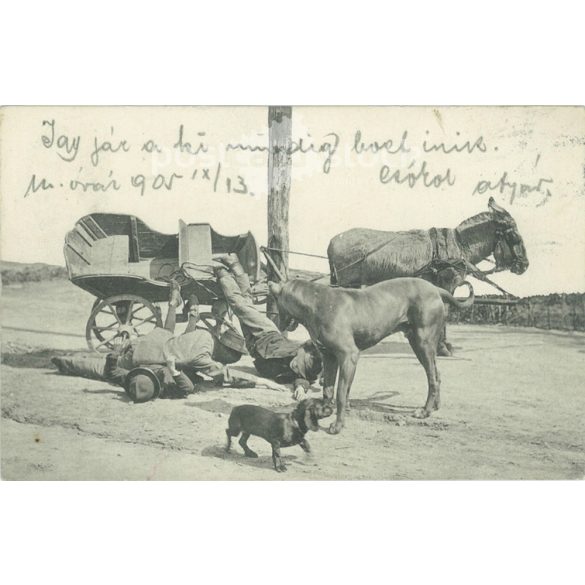 Igy jár a ki mindig bort iszik.
M. óvár 905 IX/13. Csókol atyád.